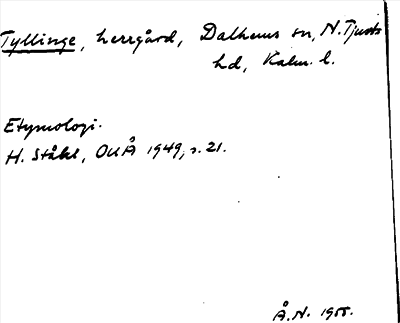 Tyllinge, herrgård, Dalhems sn, N. Tjusts
hd, Kalm. l.
Etymologi.
H. Ståhl, OUÅ 1949, s. 21.
Å.N. 1955.